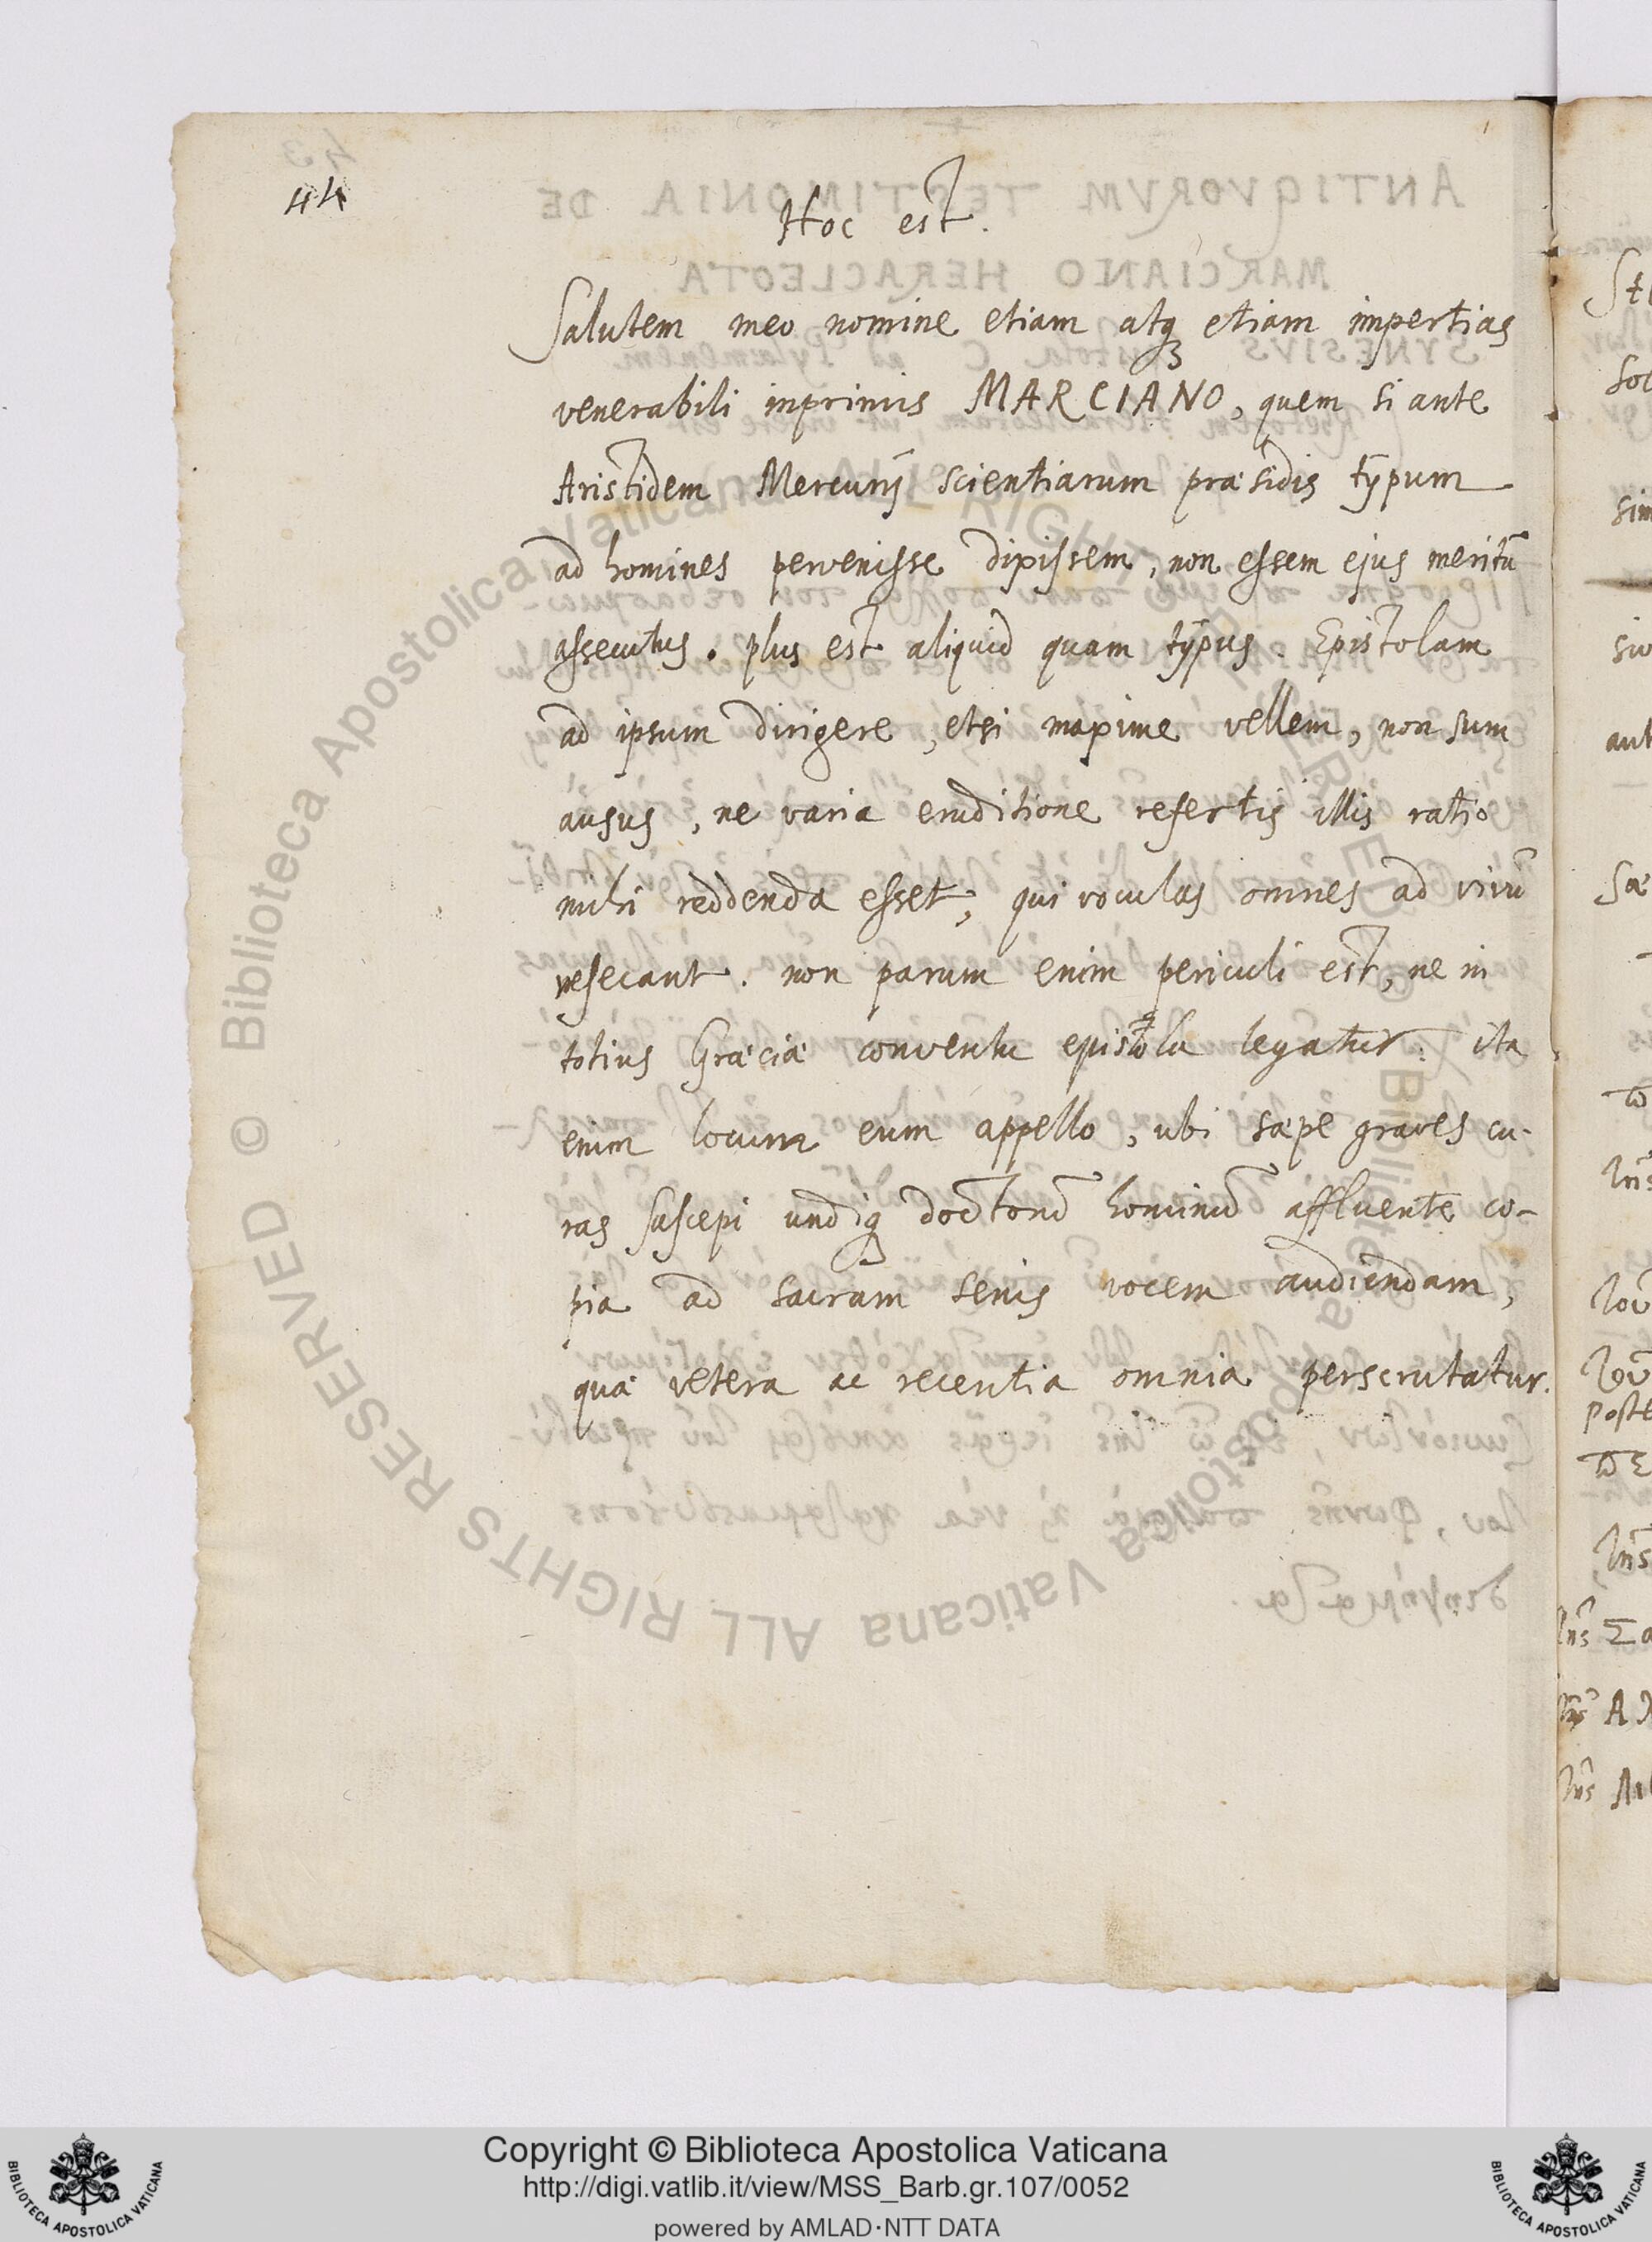 44
Hoc est.
Salutem meo nomine etiam atq; etiam impertias
venerabili inprimis MARCIANO, quem si ante
Aristidem Mercurij scientiarum præsidis typum
ad homines pervenisse dixissem, non essem ejus meritũ
assecutus. plus est aliquid quam typus. Epistolam
ad ipsum dirigere, etsi maxime vellem, non sum
ausus, ne varia eruditione refertis illis ratio
mihi reddenda esset, qui voculas omnes ad vivũ
resecant. non parum enim periculi est, ne in
totius Græciæ conventu epistola legatur: ita
enim locum eum appello, ubi sæpe graves cu-
ras suscepi undiq; doctorũ hominũ affluente co-
pia ad sacram senis vocem audiendam,
quæ vetera ac recentia omnia perscrutatur.
© Biblioteca Apostolica Vaticana ALL RIGHTS RESERVED © Biblioteca Apostolica Vaticana ALL RIGHTS RESERVED
Copyright © Biblioteca Apostolica Vaticana
http://digi.vatlib.it/view/MSS_Barb.gr.107/0052
powered by AMLAD·NTT DATA
BIBLIOTECA APOSTOLICA VATICANA
BIBLIOTECA APOSTOLICA VATICANA